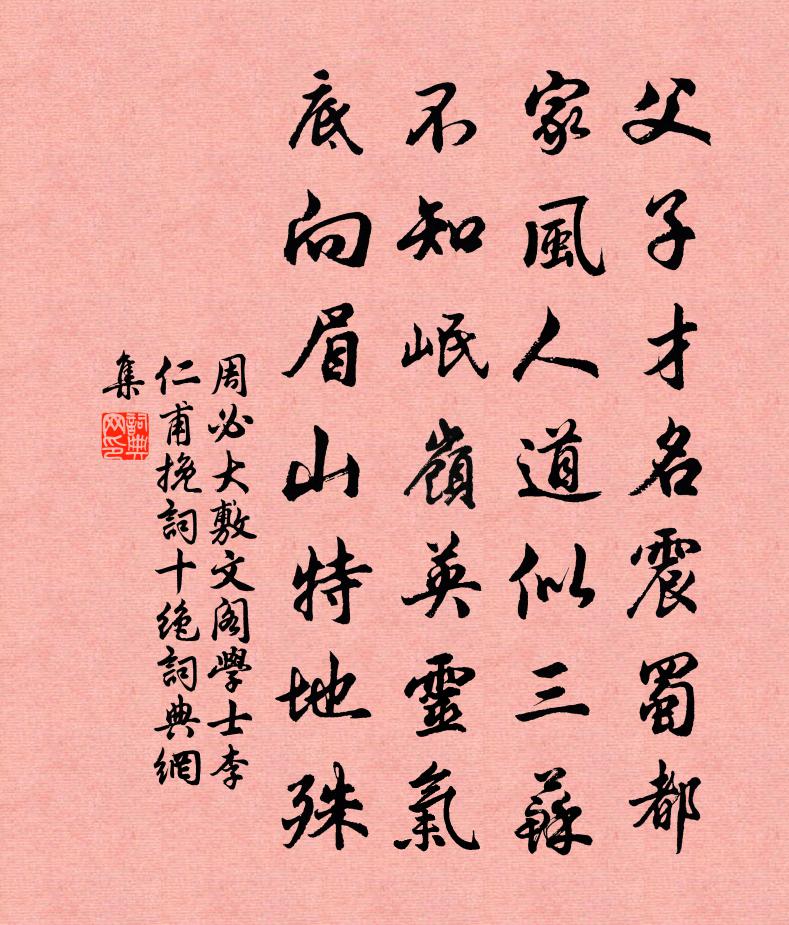 父子才名震蜀都
家風人道似三蘇
不知岷嶺英靈氣
底向眉山特地殊
周必大敷文閣學士李
仁甫挽詞十絶詞典網
集
詞典
网印